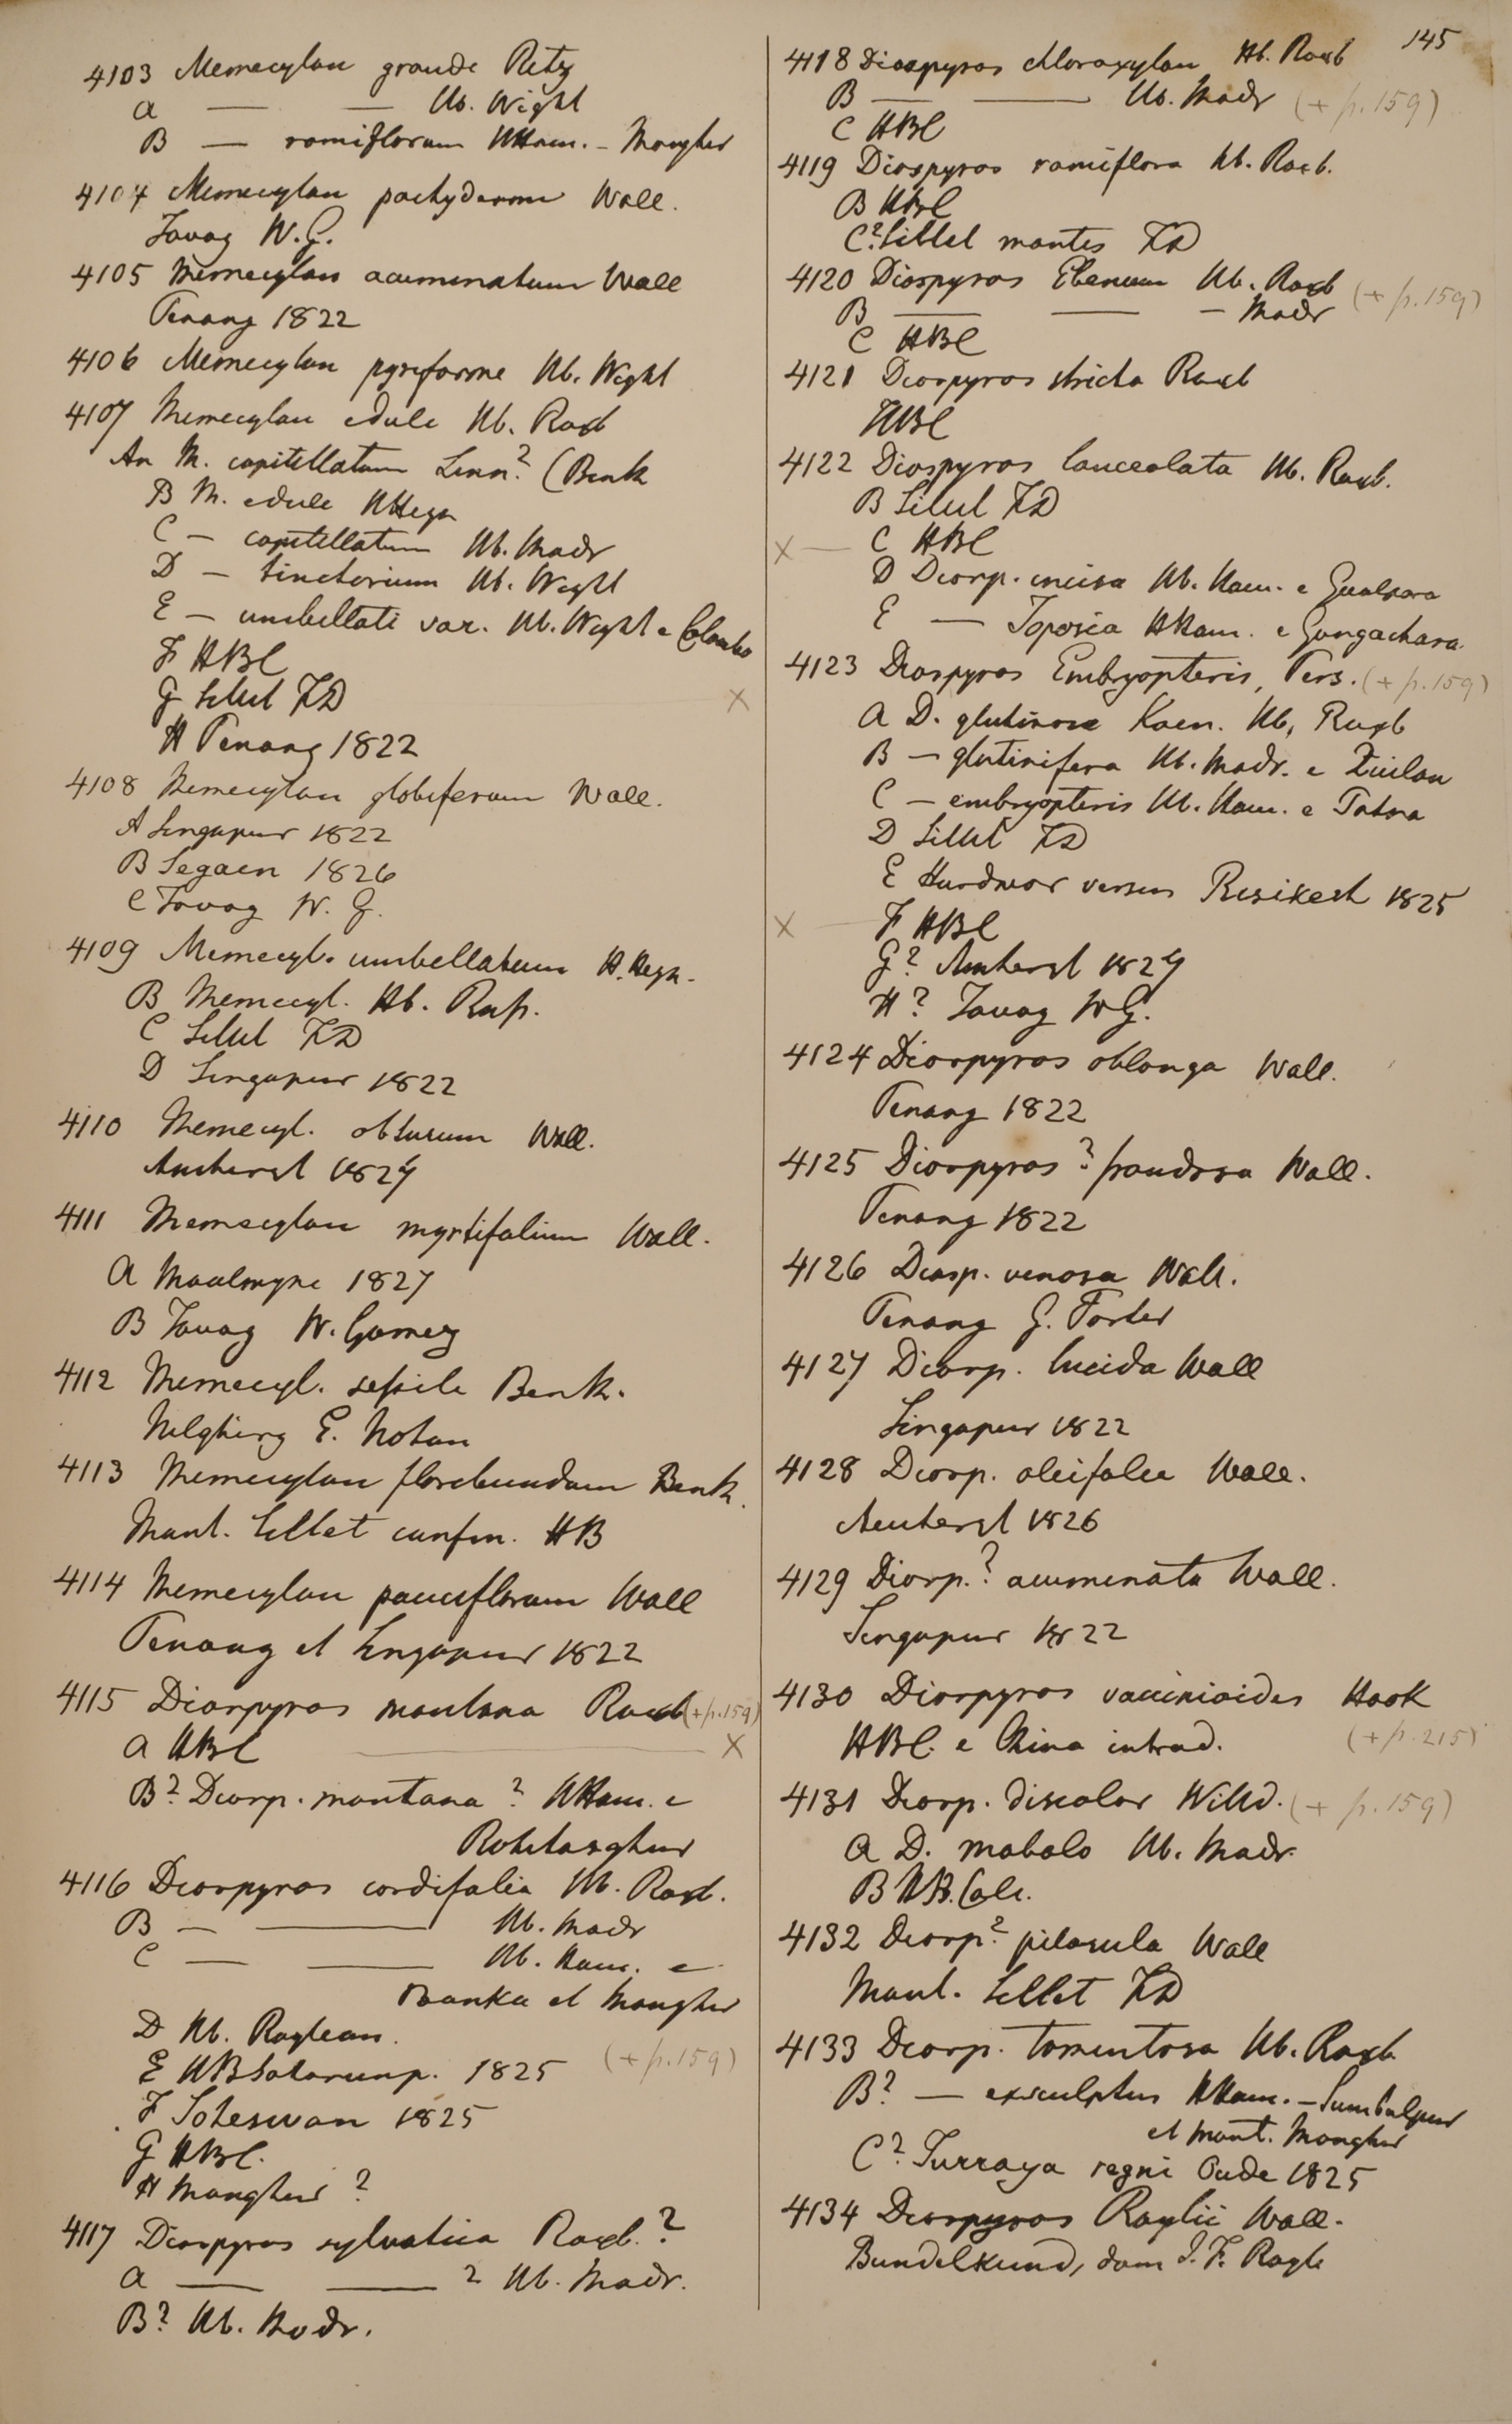 145
4103 Memecylon grande Retz
a — — Hb. Wight
B — ramiflorum HHam. - Monghir
4104 Memecylon pachyderma Wall.
Tavoy W.G.
4105 Memecylon acuminatum Wall
Penang 1822
4106 Memecylon pyriforme Hb. Wight
4107 Memecylon edule Hb. Roxb
An M. capitellatum Linn? (Benth
B M. edule HHeyn
C — capitellatum Hb. Madr
D — tinctorium Hb. Wight
E — umbellati var. Hb. Wight e Colombo
F HBC
G Sillet FD
H Penang 1822
4108 Memecylon globiferum Wall.
A Singapur 1822
B Segaen 1826
C Tavoy W. G.
4109 Memecyl. umbellatum H. Heyn.
B Memecyl. Hb. Rup.
C Sillet FD
D Singapur 1822
4110 Memecyl. obtusum Wall.
Amherst 1827
4111 Memecylon myrtifolium Wall.
A Moulmyne 1827
B Tavoy W. Gomez
4112 Memecyl. sessile Benth.
Nelghiry E. Noton
4113 Memecylon floribundum Benth.
Mont. Sillet confin. HB
4114 Memecylon pauciflorum Wall
Penang et Singapur 1822
4115 Diospyros montana Roxb (+ p. 159)
A HBC — X
B? Diosp. montana? HHam. e
Rohitasghur
4116 Diospyros cordifolia Hb. Roxb.
B — — Hb. Madr
C — — Hb. Ham. e
Banka et Monghir
D Hb. Roylean.
E HB Saharunp. 1825 (+ p. 159)
F Toleswan 1825
G HBC.
H Monghir ?
4117 Diospyros sylvatica Roxb.?
a — — ? Hb. Madr.
B? Hb. Madr.
4118 Diospyros chloroxylon Hb. Roxb
B — — Hb. Madr (+ p. 159)
C HBC
4119 Diospyros ramiflora Hb. Roxb.
B HBC
C? Sillet montes FD
4120 Diospyros Ebenum Hb. Roxb (+ p. 159)
B — — — Madr
C HBC
4121 Diospyros stricta Roxb
HBC
4122 Diospyros lanceolata Hb. Roxb.
B Sillet FD
X — C HBC
D Diosp. incisa Hb. Ham. e Gualpara
E — Toposia HHam. e Gongachara
4123 Diospyros Embryopteris, Pers. (+ p. 159)
A D. glutinosa Koen. Hb. Roxb
B — glutinifera Hb. Madr. e Zeilon
C — embryopteris Hb. Ham. e Patna
D Sillet FD
E Hurdwar versus Resikesh 1825
X — F HBC
G? Amherst 1827
H? Tavoy WG.
4124 Diospyros oblonga Wall.
Penang 1822
4125 Diospyros? frondosa Wall.
Penang 1822
4126 Diosp. venosa Wall.
Penang G. Porter
4127 Diosp. lucida Wall
Singapur 1822
4128 Diosp. oleifolia Wall.
Amherst 1826
4129 Diosp.? acuminata Wall.
Singapur 1822
4130 Diospyros vaccinioides Hook
HBC. e China introd. (+ p. 215)
4131 Diosp. discolor Willd. (+ p. 159)
A D. mabolo Hb. Madr.
B HB. Calc.
4132 Diosp? pilosula Wall
Mont. Sillet FD
4133 Diosp. tomentosa Hb. Roxb
B? — exsculptus HHam. - Sumbulpur
et mont. Monghir
C? Turraya regni Oude 1825
4134 Diospyros Roylii Wall.
Bundelkund, dom J. F. Royle